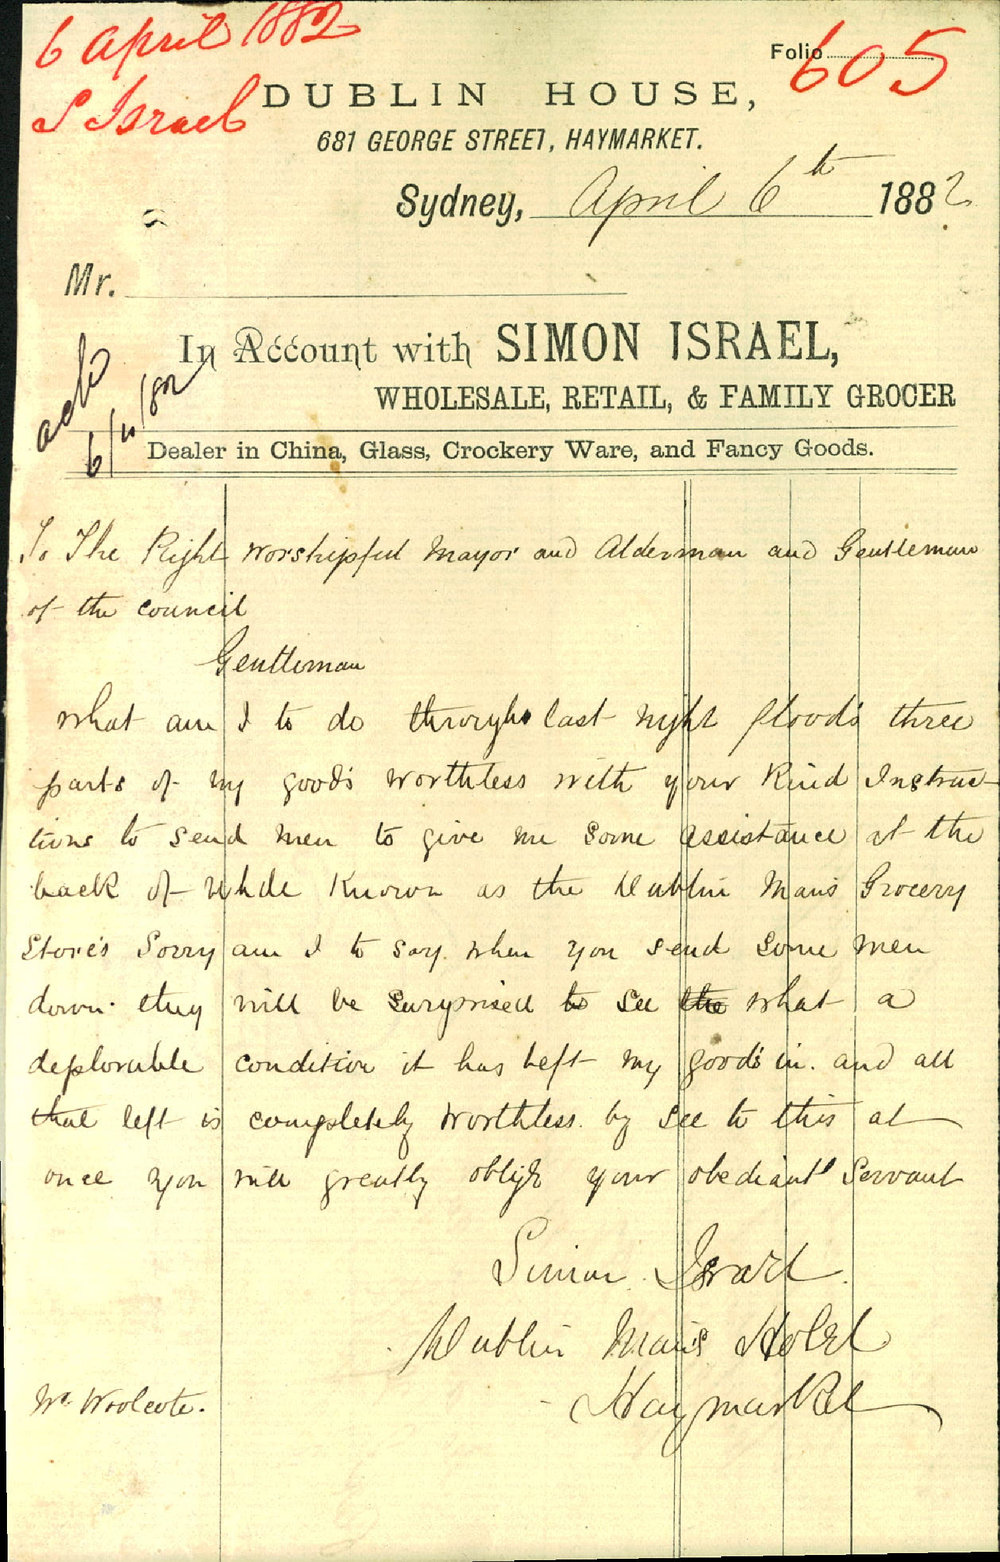 6 April 1882
S Israel
Folio 605
DUBLIN HOUSE,
681 GEORGE STREET, HAYMARKET.
Sydney, April 6th 1882
Mr.
In Account with SIMON ISRAEL,
WHOLESALE, RETAIL, & FAMILY GROCER
Dealer in China, Glass, Crockery Ware, and Fancy Goods.
6/4/82
To The Right Worshipful Mayor and Alderman and Gentleman
of the council
Gentleman
What am I to do through last night flood's three
parts of my good's worthless with your Kind Instruc-
tions to send men to give me some assistance at the
back of Known as the Dublin Man's Grocery
Store's Sorry am I to say. when you send some men
down. they will be surprised to see the what a
deplorable condition it has left my good's in. and all
that left is completely worthless. by see to this at
once you will greatly oblige your obediant Servant
Simon Israel.
Dublin Man's Hotel
Haymarket
Mr. Woolcote.